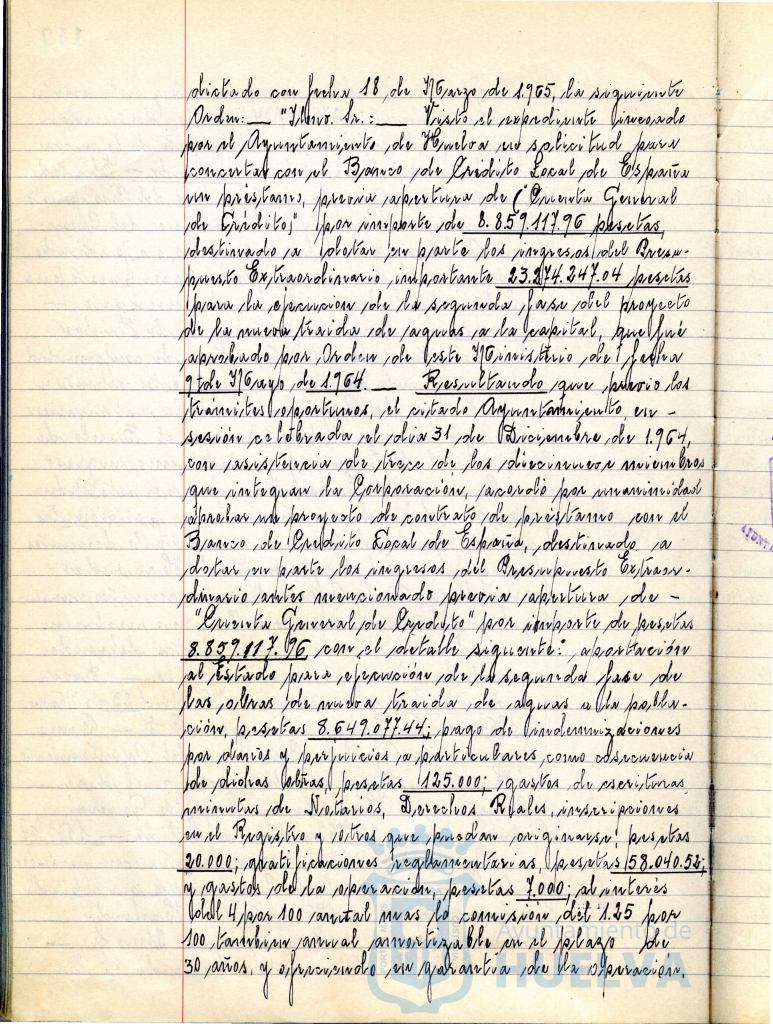 dictado con fecha 18 de Marzo de 1.965, la siguiente
Orden:__ "Ilmo. Sr.:__ Visto el expediente incoado
por el Ayuntamiento de Huelva en solicitud para
concertar con el Banco de Crédito Local de España
un préstamo, previa apertura de ("Cuenta General
de Crédito," por importe de 8.859.117.96 pesetas,
destinado a dotar en parte los ingresos del Presu-
puesto Extraordinario importante 23.274.247.04 pesetas
para la ejecución de la segunda fase del proyecto
de la nueva traida de aguas a la capital, que fué
aprobado por Orden de este Ministerio de fecha
9 de Mayo de 1.964.__ Resultando que previo los
trámites oportunos, el citado Ayuntamiento, en -
sesión celebrada el dia 31 de Diciembre de 1.964,
con asistencia de trece de los diecinueve miembros
que integran la Corporación, acordó por unanimidad
aprobar un proyecto de contrato de préstamo con el
Banco de Credito Local de España, destinado a
dotar en parte los ingresos del Presupuesto Extraor-
dinario antes mencionado previa apertura de -
"Cuenta General de Credito" por importe de pesetas
8.859.117.96 con el detalle siguente: aportación
al Estado para ejecución de la segunda fase de
las obras de nueva traida de aguas a la pobla-
ción, pesetas 8.649.077.44; pago de indemnizaciones
por daños y perjuicios a particulares, como cosecuencia
de dichas obras, pesetas 125.000; gastos de escrituras,
minutas de Notarios, Derechos Reales, inscripciones
en el Registro y otros que puedan originarse: pesetas
20.000; gratificaciones reglamentarias, pesetas 58.040.52;
y gastos de la operación, pesetas 7.000; al interés
del 4 por 100 anual mas la comisión del 1.25 por
100 tambien anual amortizable en el plazo de
30 años, y ofreciendo en garantia de la operación.
Ayuntamiento de
HUELVA